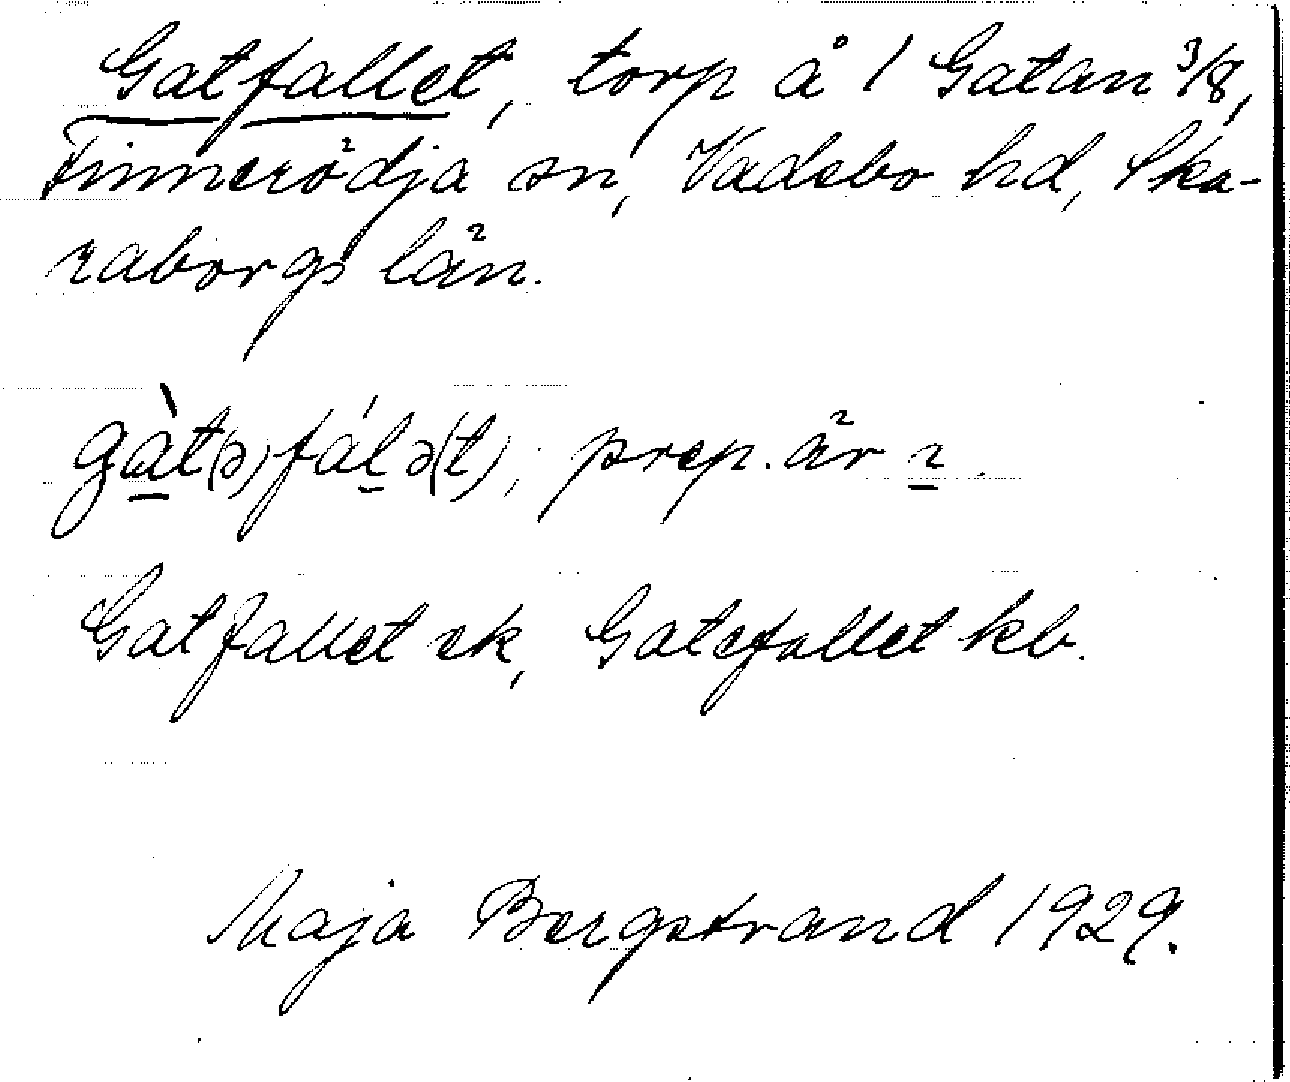 Gatfallet, torp å 1 Gatan 3/8,
Finnerödja sn, Vadsbo hd, Ska-
raborgs län.
gàt(ə)fálə(t), prep. är ɩ.
Gatfallet ek, Gatefallet kb.
Maja Bergstrand 1929.